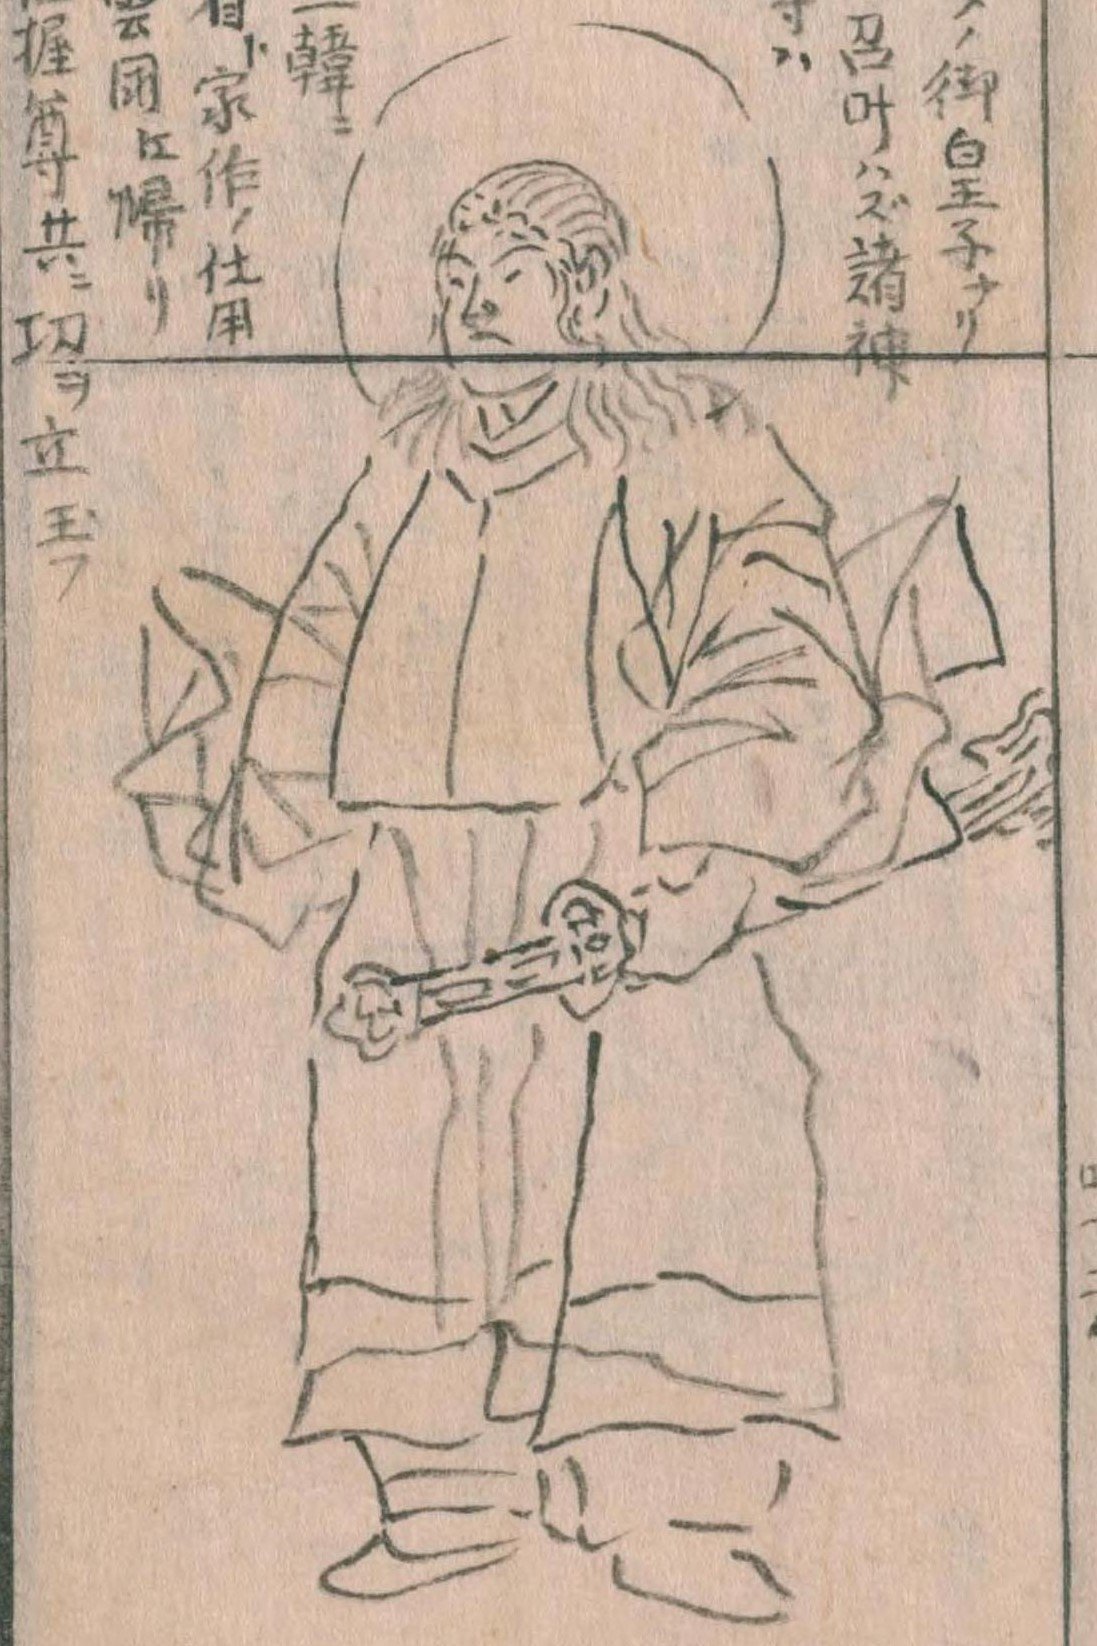 ノ御皇子ナリ
召叶ハズ諸神
寸ハ
三韓ニ
家作ノ仕用
雲国江帰リ
握尊共ニ功ヲ立玉フ